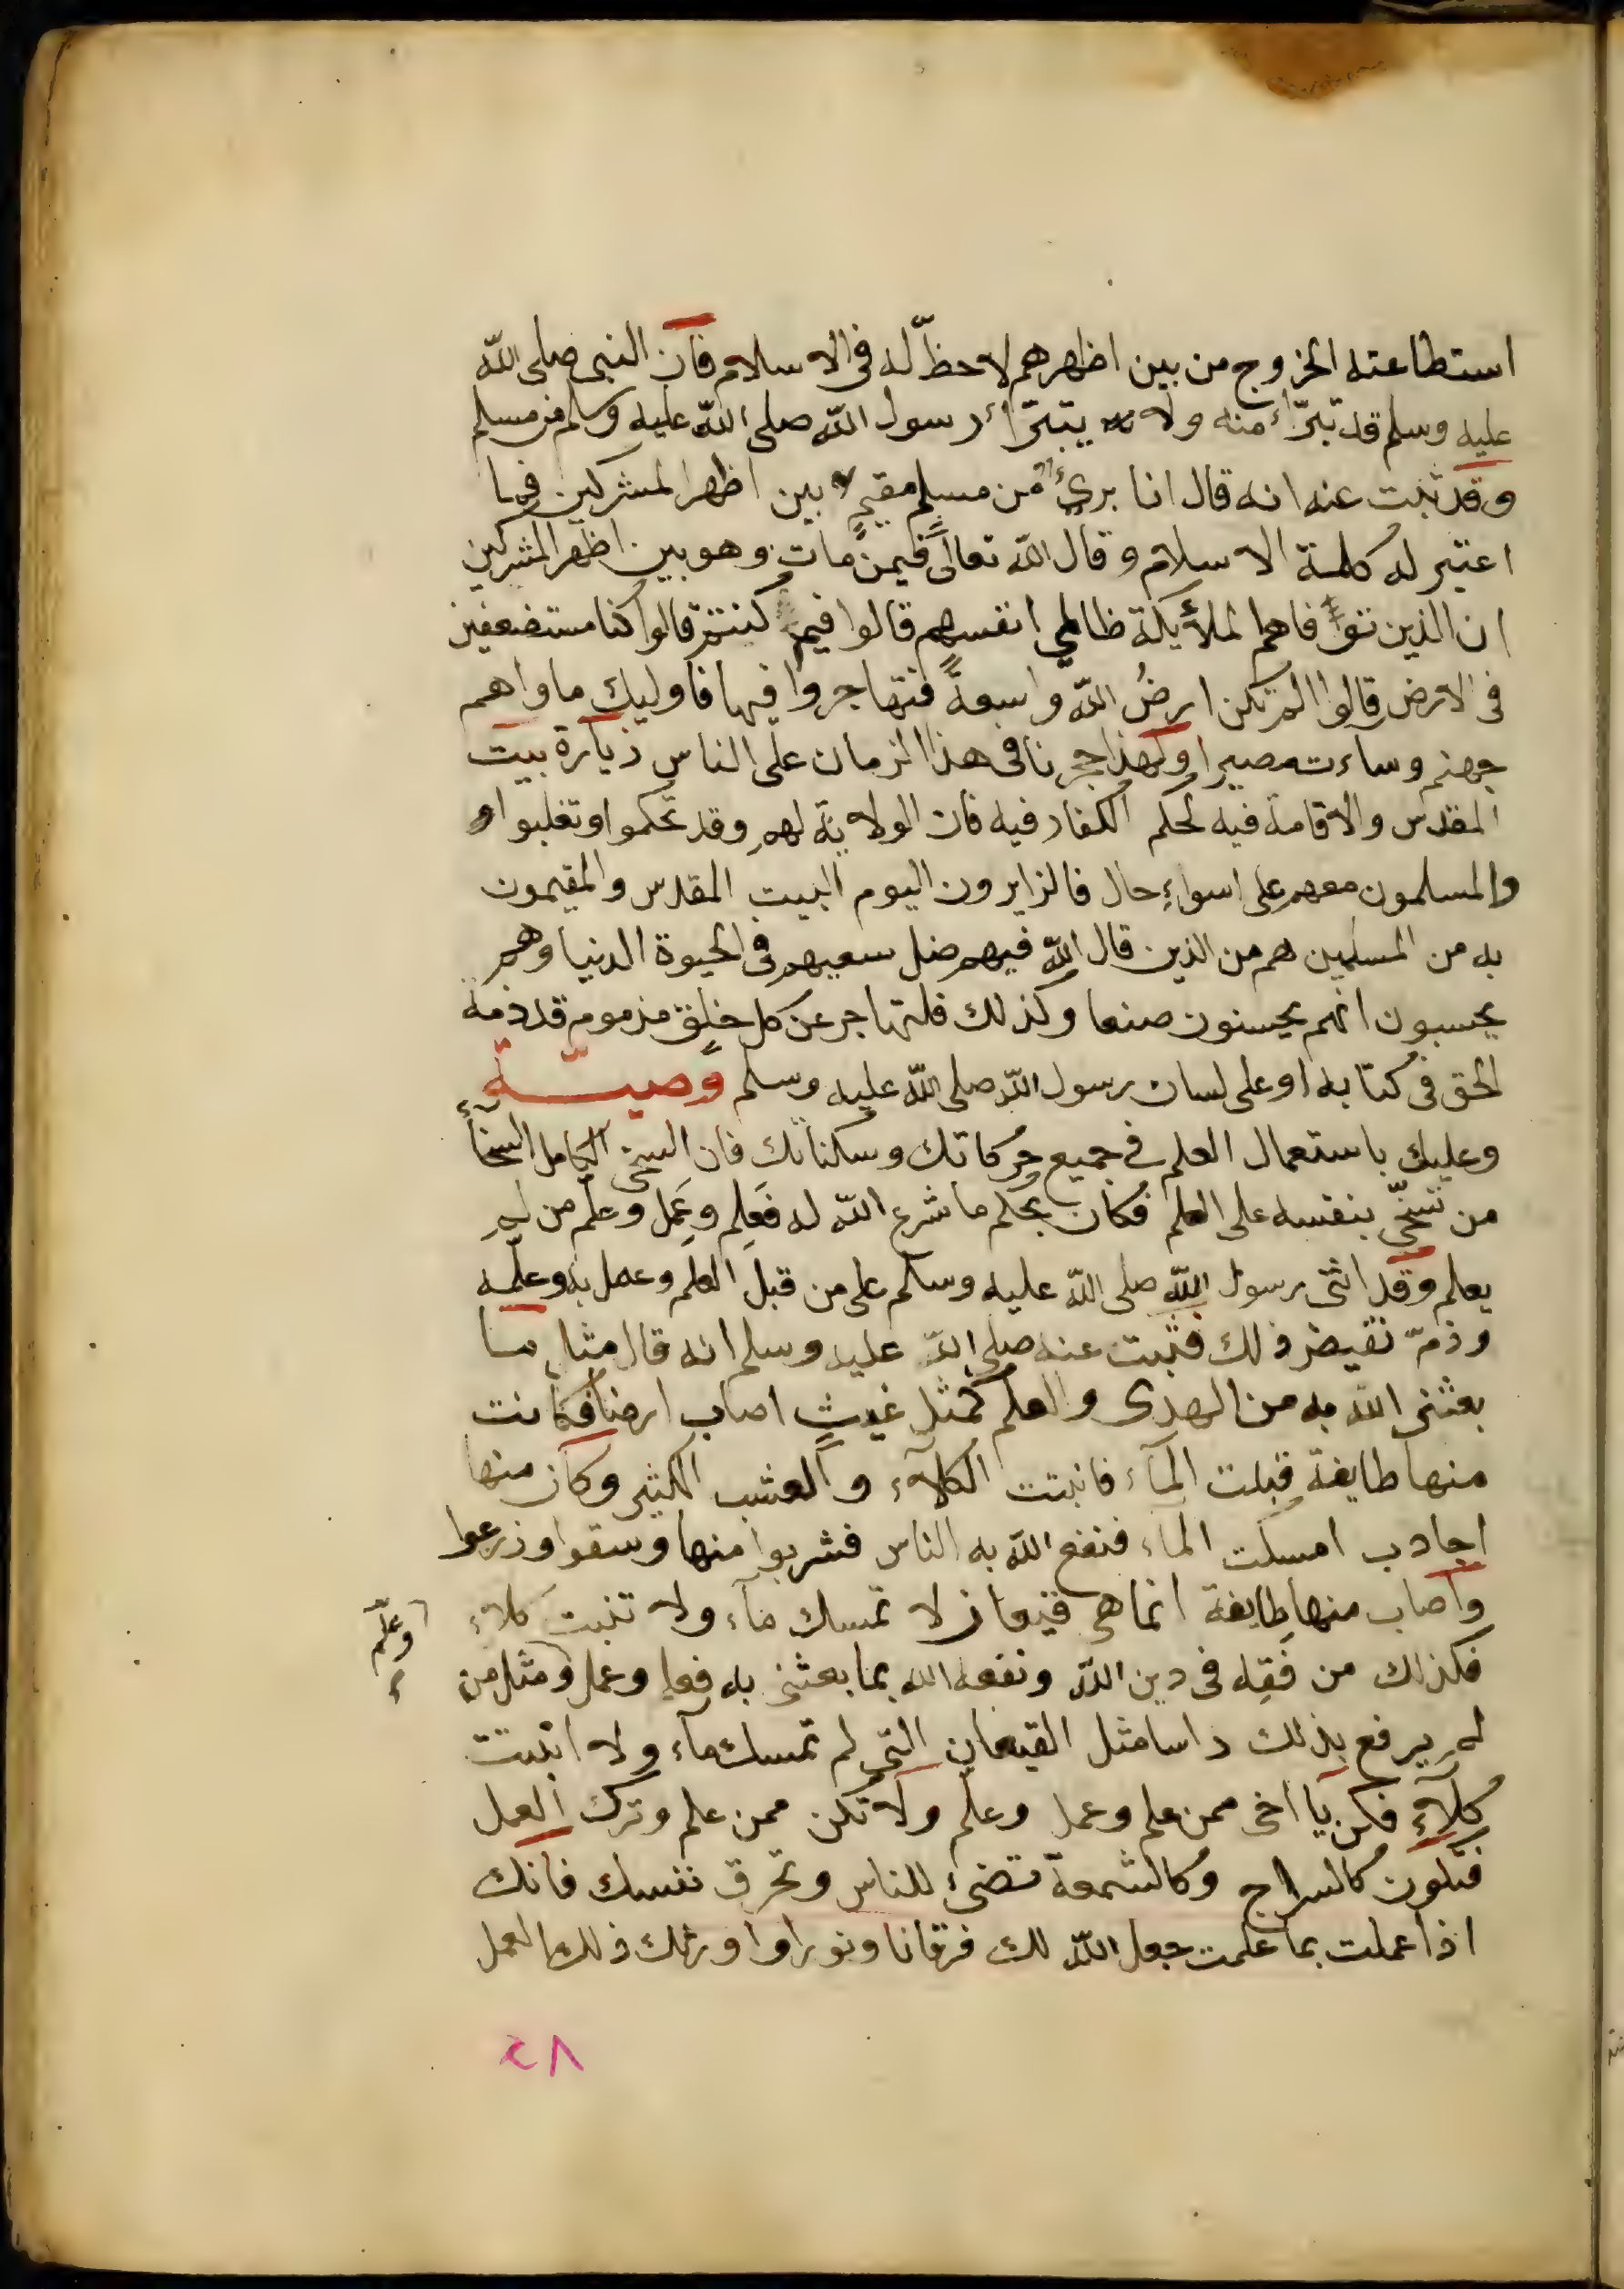 استطاعته الخروج من بين اظهرهم لاحظّ له فى الاسلام فان النبى صلى الله
عليه وسلم قد تبرّأ منه ولا يتبرّأ رسول الله صلى الله عليه وسلم من مسلم
وقد ثبت عنه انه قال انا برئ من مسلم مقيم بين اظهر المشركين فما
اعتبر له كلمة الاسلام وقال الله تعالى فيمن مات وهو بين اظهر المشركين
ان الذين توفاهم الملأيكة ظالمي انفسهم قالوا فيم كنتم قالوا كنا مستضعفين
فى الارض قالوا الم تكن ارضُ الله واسعةً فتهاجروا فيها فاوليك ماواهم
جهنم وساءت مصيرا ولهذا حجرنا فى هذا الزمان على الناس زيارة بيت
المقدس والاقامة فيه لحكم الكفار فيه فان الولاية لهم وقد تحكموا وتغلبوا
والمسلمون معهم على اسواء حال فالزايرون اليوم البيت المقدس والمقيمون
به من المسلمين هم من الذين قال الله فيهم ضل سعيهم فى الحيوة الدنيا وهم
يحسبون انهم يحسنون صنعا وكذلك فلتهاجر عن كل خلق مذموم قد ذمه
الحق فى كتابه او على لسان رسول الله صلى الله عليه وسلم وصيّة
وعليك باستعمال العلم فى جميع حركاتك وسكناتك فان السخى الكامل السخآء
من تسخّى بنفسه على العلم فكان بحكم ما شرع الله له فَعَلِم وعَمِل وعلّم من لم
يعلم وقد اثنى رسول الله صلى الله عليه وسلم على من قبل العلم وعمل به وعلّمه
وذمّ نقيض ذلك فثبت عنه صلى الله عليه وسلم انه قال مثل ما
بعثنى الله به من الهدى والعلم كمثل غيثٍ اصاب ارضا فكانت
منها طايفة قبلت المآء فانبتت الكلآء والعشب الكثير وكان منها
اجادب امسكت المآء فنفع الله به الناس فشربوا منها وسقوا وزرعوا
واصاب منها طايفة انما هى قيعان لا تمسك مآء ولا تنبت كلاء
فكذلك من فَقِه فى دين الله ونفعه الله بما بعثنى به فعلم وعمل ومثل من
وعلّم
لم يرفع بذلك راسا مثل القيعان التى لم تمسك مآء ولا انبتت
كلآء فكن يا اخى ممن علم وعمل وعلّم ولا تكن ممن علم وترك العمل
فتكون كالسراج وكالشمعة تضئ للناس وتحرق نفسك فانك
اذا عملت بما علمت جعل الله لك فرقانا ونورا واورثك ذلك العمل
٢٨